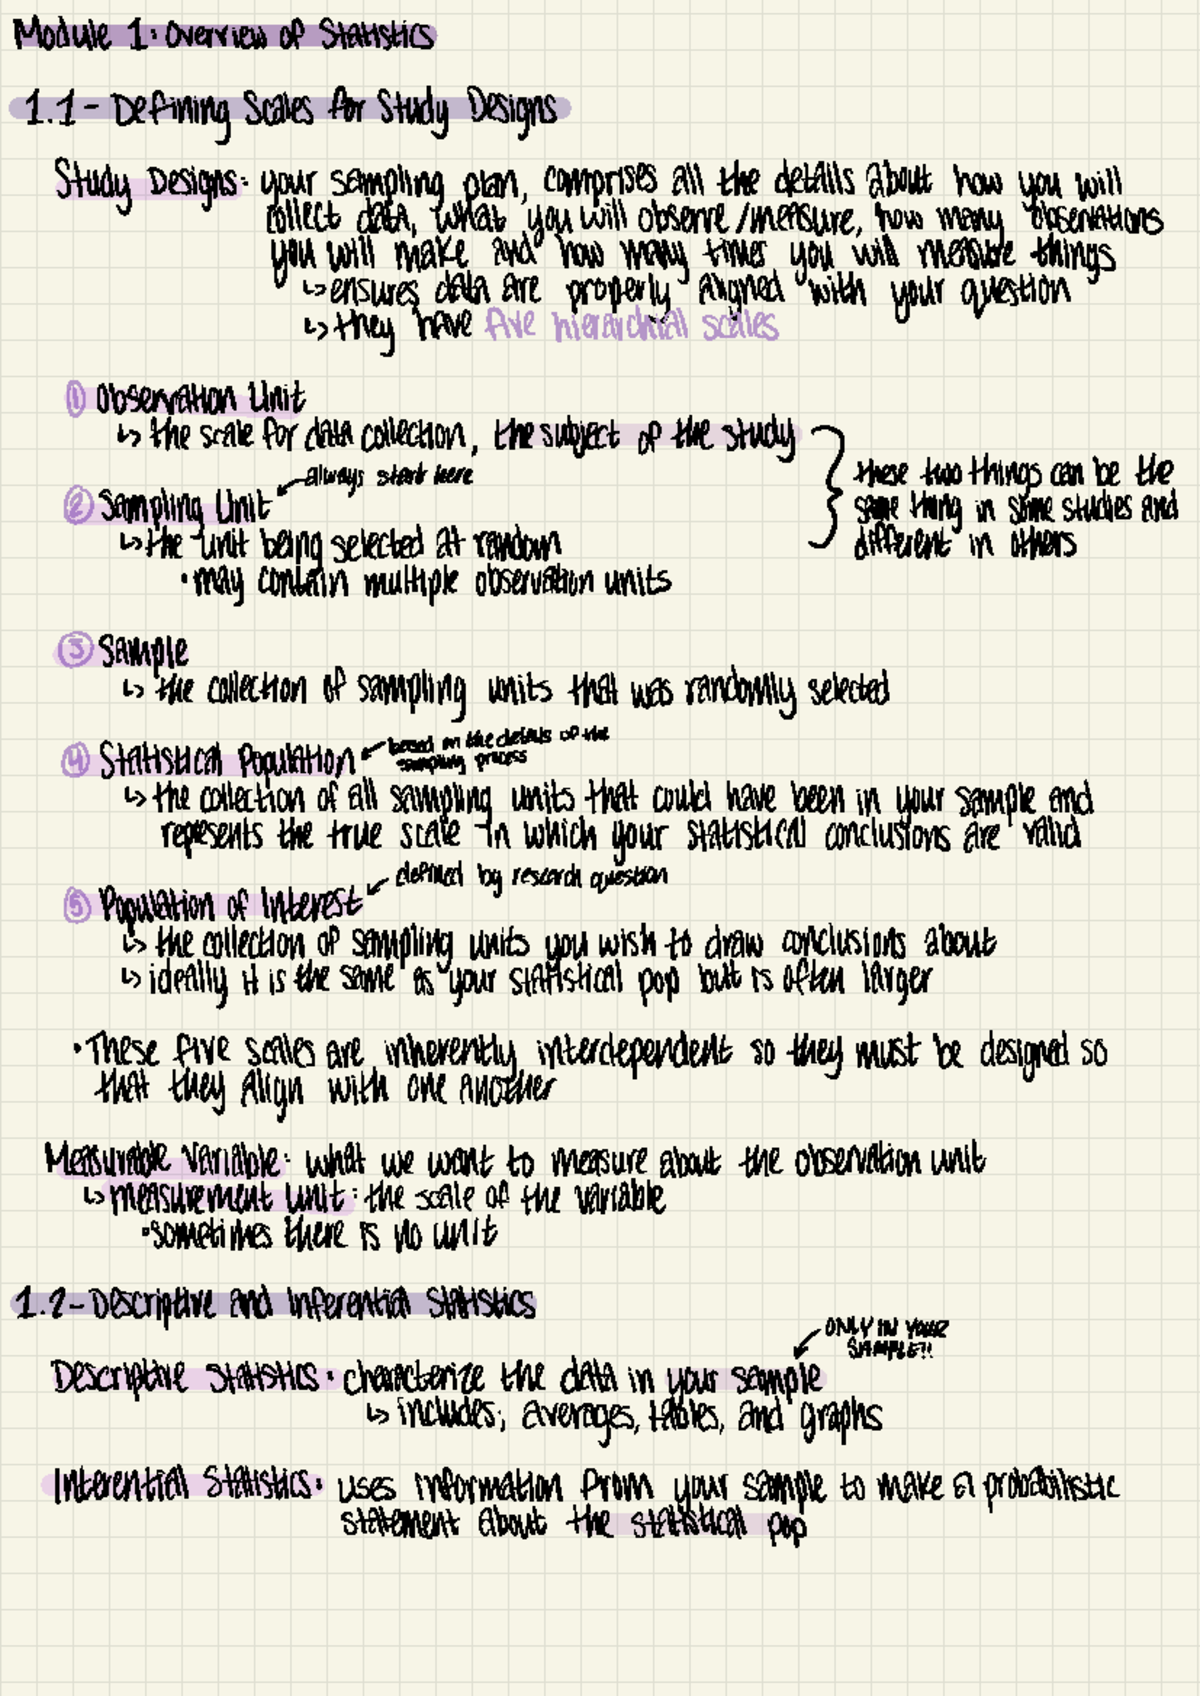 Module 1: Overview of Statistics
1.1 - Defining Scales for Study Designs
Study Designs: your sampling plan, comprises all the details about how you will
collect data, what you will observe/measure, how many observations
you will make and how many times you will measure things
↳ ensures data are properly aligned with your question
↳ they have five hierarchial scales
① Observation Unit
↳ the scale for data collection, the subject of the study
always start here
② Sampling Unit
↳ the unit being selected at random
• may contain multiple observation units
these two things can be the
same thing in some studies and
different in others
③ Sample
↳ the collection of sampling units that was randomly selected
④ Statistical Population
based on the details of the
sampling process
↳ the collection of all sampling units that could have been in your sample and
represents the true scale in which your statistical conclusions are valid
⑤ Population of Interest
defined by research question
↳ the collection of sampling units you wish to draw conclusions about
↳ ideally it is the same as your statistical pop but is often larger
• These five scales are inherently interdependent so they must be designed so
that they align with one another
Measurable Variable: what we want to measure about the observation unit
↳ measurement unit: the scale of the variable
• sometimes there is no unit
1.2 - Descriptive and Inferential Statistics
ONLY IN YOUR
SAMPLE!!
Descriptive Statistics: characterize the data in your sample
↳ includes; averages, tables, and graphs
Inferential Statistics: uses information from your sample to make a probabilistic
statement about the statistical pop